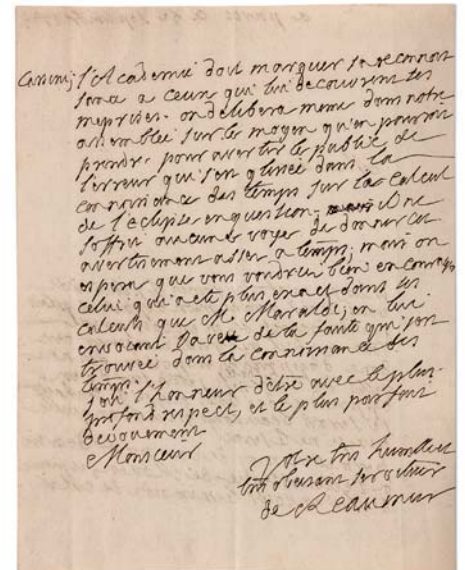 Cassini; l'Academie doit marquer sa reconnois
sance a ceux qui lui decouvrent ses
meprises. on delibera meme dans notre
assemblée sur le moyen qu'on pourroit
prendre pour avertir le public de
l'erreur qui s'en glissée dans la
connoissance des temps sur le calcul
de l'eclipse en question. One
s'offrit aucune voye de donner cet
avertissement assez a temps; mais on
espera que vous voudriez bien encourager
celui qui a ete plus exact dans ses
calculs que M. Maraldi, en lui
envoiant l'aveu de la faute qui s'est
trouvée dans la connoissance des
temps.
J'ai l'honneur d'être avec le plus
profond respect, et le plus parfait
devouement
Monsieur
Votre tres humble et
tres obeissant serviteur
de Reaumur